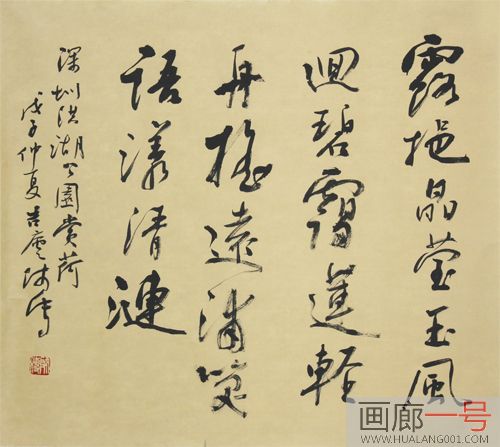 露挹晶莹玉風
迴碧靄蓮輕
舟搖遠浦笑
語漾清漣
深圳洪湖公園賞荷
戊子仲夏吉
画廊一号
WWW.HUALANG001.COM